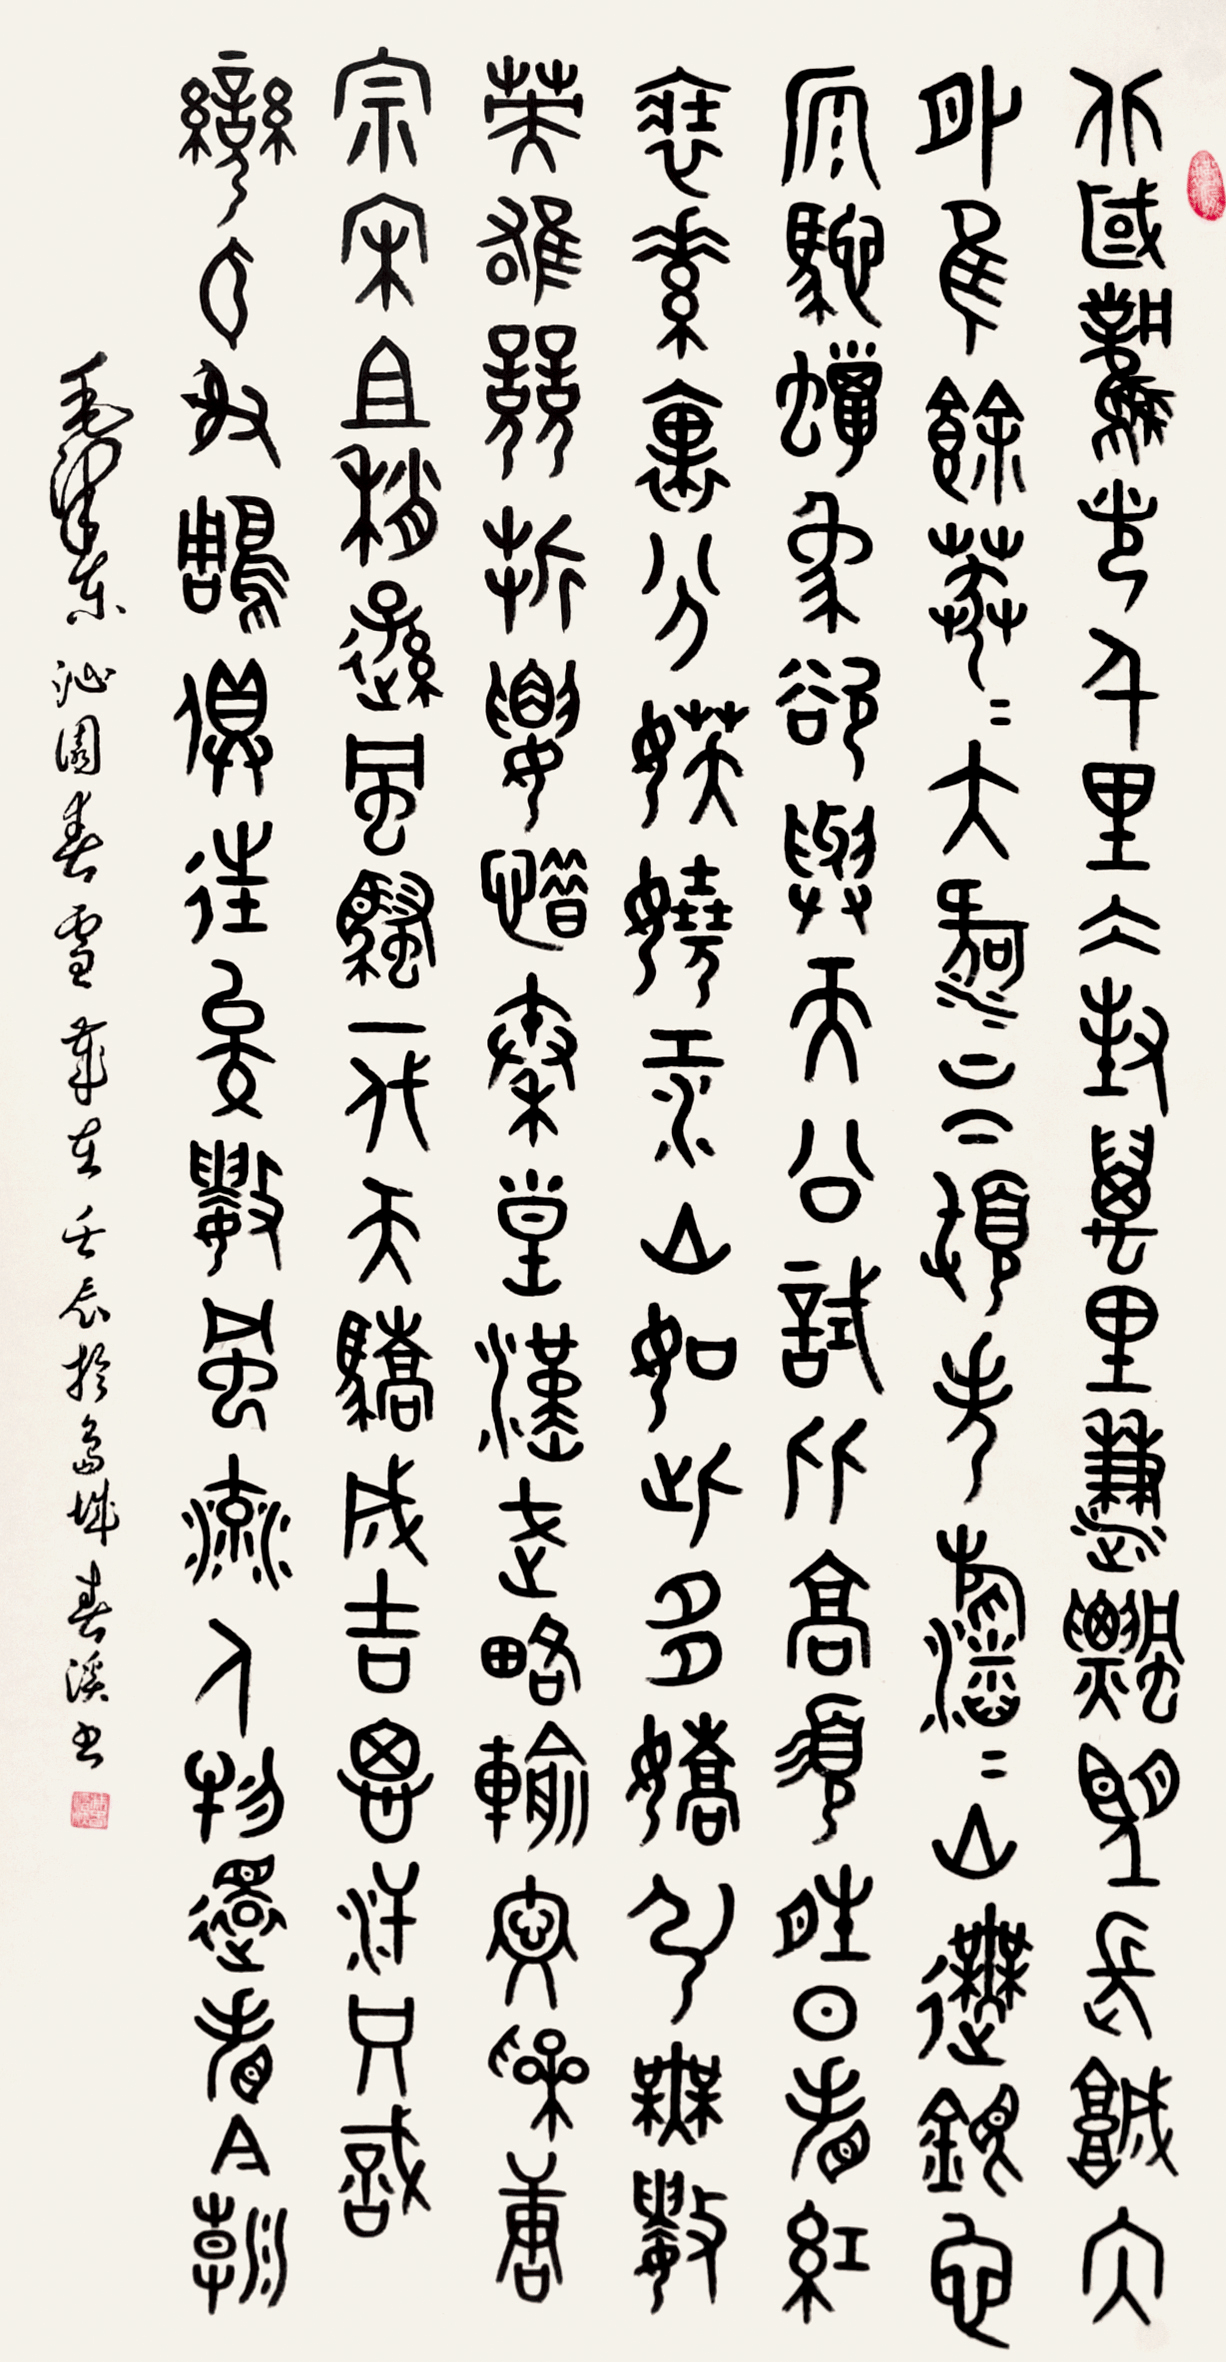 北國風光千里冰封萬里雪飄望長城内
外惟餘莽=大河上下頓失滔=山舞銀蛇
原馳蠟象欲與天公試比高須晴日看紅
裝素裹分妖嬈江山如此多嬌引無數
英雄競折腰惜秦皇漢武略輸文采唐
宗宋且稍遜風騷一代天驕成吉思汗只識
彎弓射鵰俱往矣數風流人物還看今朝
毛澤東 沁園春 雪 歲在壬辰於島城春溪書